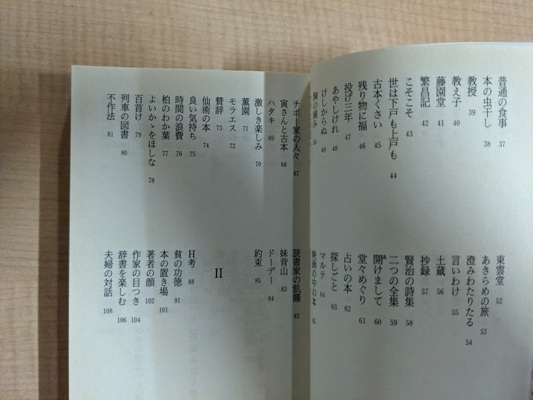 普通の食事 37
本の虫干し 38
教授 39
教え子 40
藤園堂 41
繁昌記 42
こそこそ 43
世は下戸も上戸も 44
古本くさい 45
残り物に福 46
投げ三年 47
あやしけれ 48
けしからぬ 49
胸の痛み 50
東雲堂 52
あきらめの旅 53
澄みわたりたる 54
言いわけ 55
土蔵 56
抄録 57
賢治の詩集 58
二つの全集 59
開けまして 60
堂々めぐり 61
占いの本 62
探しごと 63
マルテ 64
映画の中の本 65
チボー家の人々 67
寅さんと古本 68
ハタキ 69
激しき楽しみ 70
薫園 71
モラエス 72
賛辞 73
仙術の本 74
良い気持ち 75
時間の浪費 76
柏のわか葉 77
よいかゝをほしな 78
百首け 79
列車の図書 80
不作法 81
読書家の飢饉 82
妹背山 83
ドーデー 84
約束 85
II
H考 88
貧の功徳 91
本の置き場 101
著者の顔 102
作家の目つき 104
辞書を楽しむ 106
夫婦の対話 108